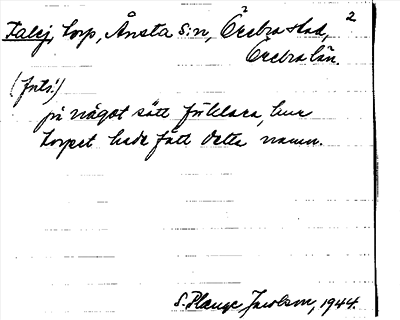 2
Talej, torp, Ånsta s:n, Örebro stad,
Örebro län.
(forts.)
på något sätt förklara, hur
torpet hade fått detta namn.
S. Plenge Jacobson, 1944.